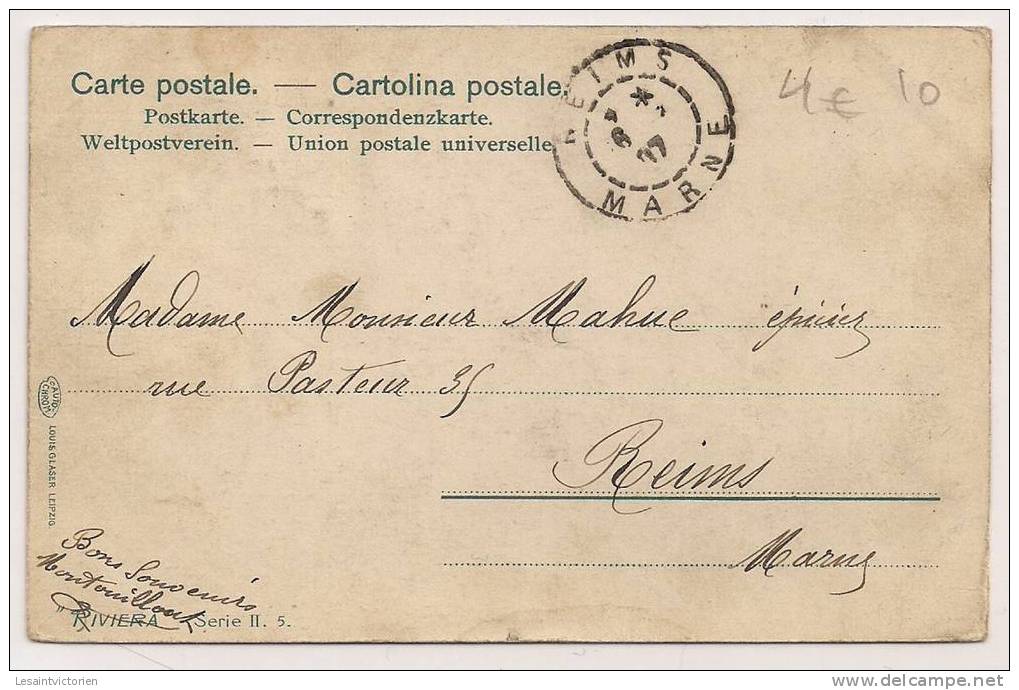 Carte postale. — Cartolina postale.
Postkarte. — Correspondenzkarte.
Weltpostverein. — Union postale universelle.
REIMS
* 
6
07
MARNE
4€ 10
Madame Monsieur Mahue épicier
rue Pasteur 35
Reims
Marne
AUTO
CHROM
LOUIS GLASER LEIPZIG.
Bons Souvenirs
"RIVIERA" Serie II. 5.
Lesaintvictorien
delcampe.net